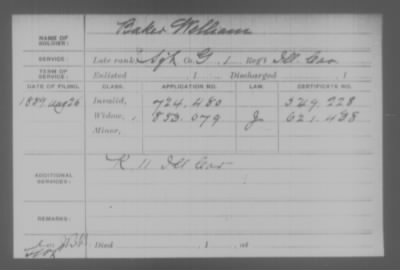 NAME OF SOLDIER: Baker William
SERVICE: Late rank, Sgt Co. G, 1 Reg't Ill Cav
TERM OF SERVICE: Enlisted , 1 Discharged , 1
DATE OF FILING. CLASS. APPLICATION NO. LAW. CERTIFICATE NO.
1889 Aug 26 Invalid, 724.480 349.228
Widow, 853.079 J 621.438
Minor,
ADDITIONAL SERVICES: K 11 Ill Cav
REMARKS:
Died , 1 , at